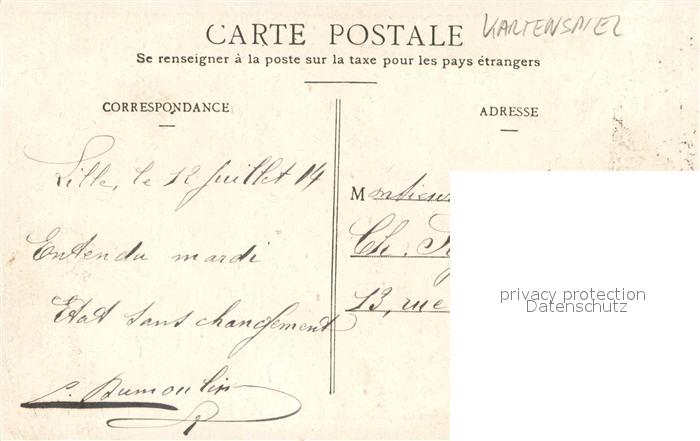 CARTE POSTALE
KARTENSPIEL
Se renseigner à la poste sur la taxe pour les pays étrangers
CORRESPONDANCE
Lille, le 12 Juillet 14
Entendu mardi
Etat sans changement
Dumoulin
ADRESSE
Monsieur
Ch.
13, rue
privacy protection
Datenschutz